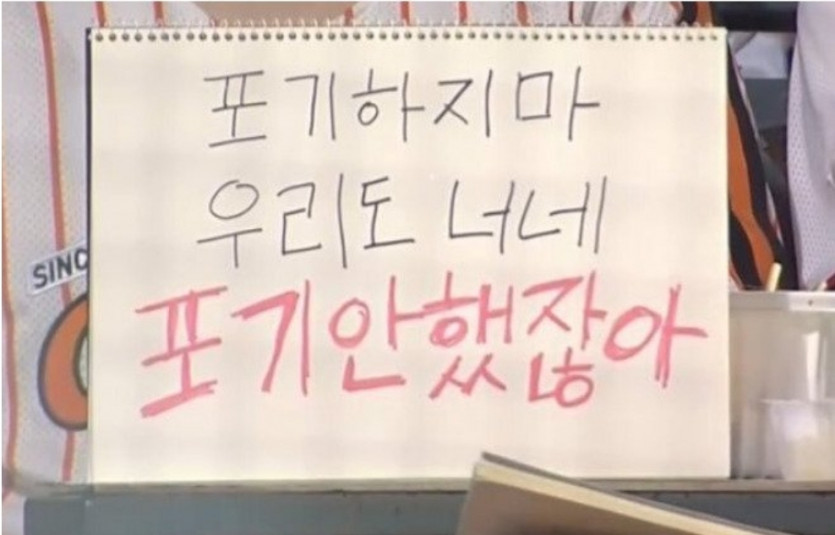 포기하지마
우리도 너네
포기안했잖아
SINC